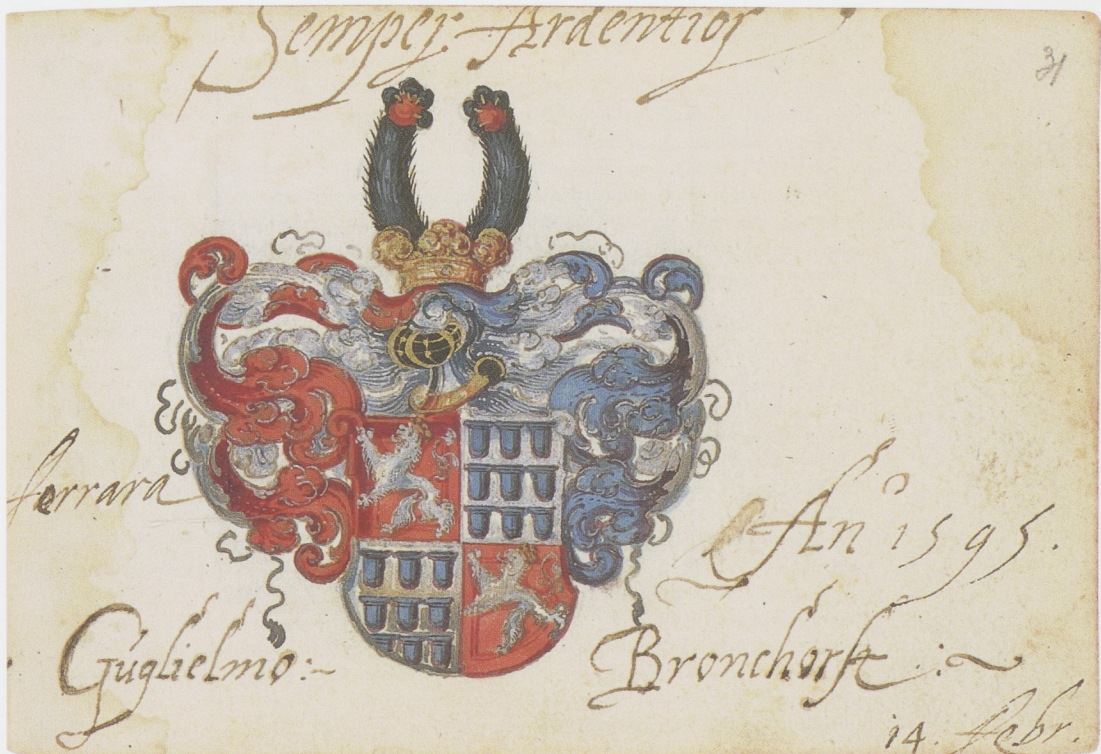 Semper Ardentior
31
ferrara
Añ 1595.
Guglielmo:~
Bronchorst.:~
14. febr.